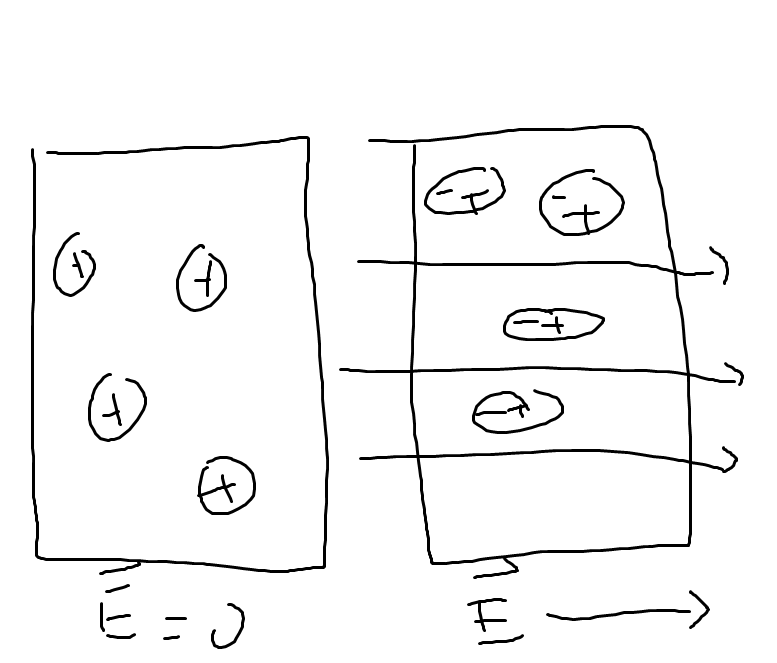 + +
+
+
- + - +
- +
- +
E⃗ = 0
E⃗ →